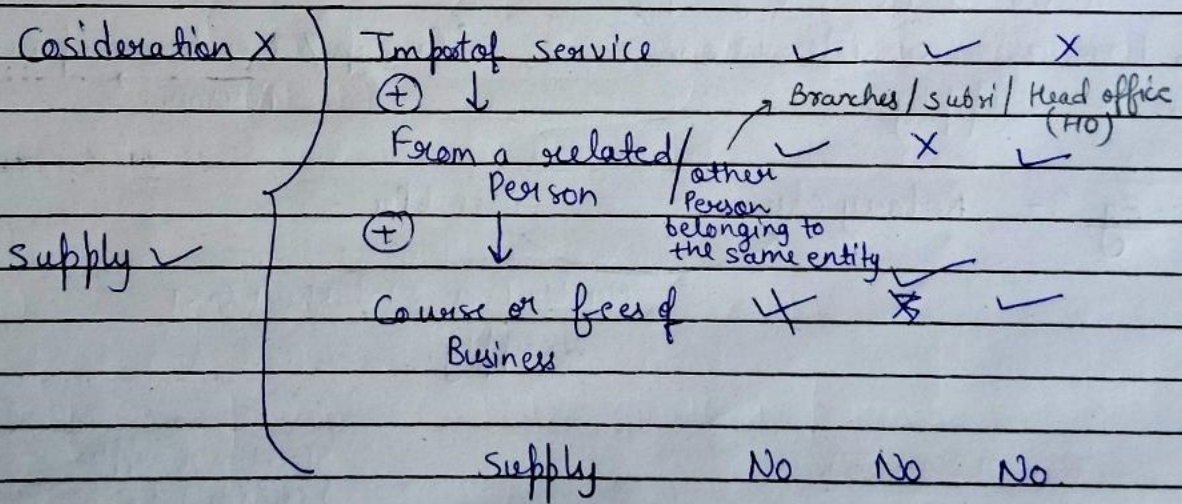 Cosideration X
Import of service ✓ ✓ X
(+) ↓
Branches / subri / Head office
(HO)
From a related/ ✓ X ✓
Person
other
Person
belonging to
the same entity
(+) ↓
Supply ✓
✓
Course or fees of X ✓
Business
Supply No No No.